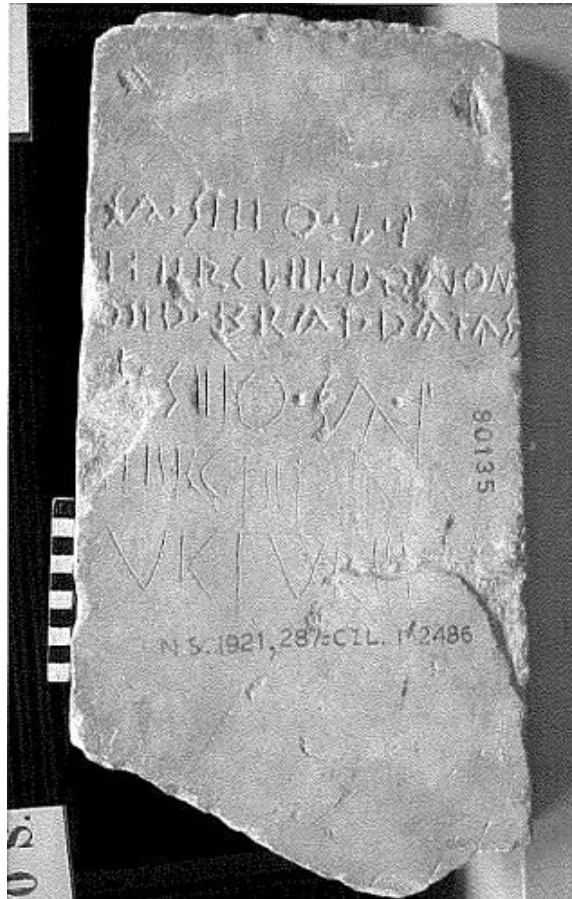 SA·SEIO·L·F
HERCLEI·DONOM
DED·BRAT·DATAS
SEIO·SA·F
HERCLEI
VICTVREI
80135
N.S. 1921, 287=CIL. I² 2486
S.